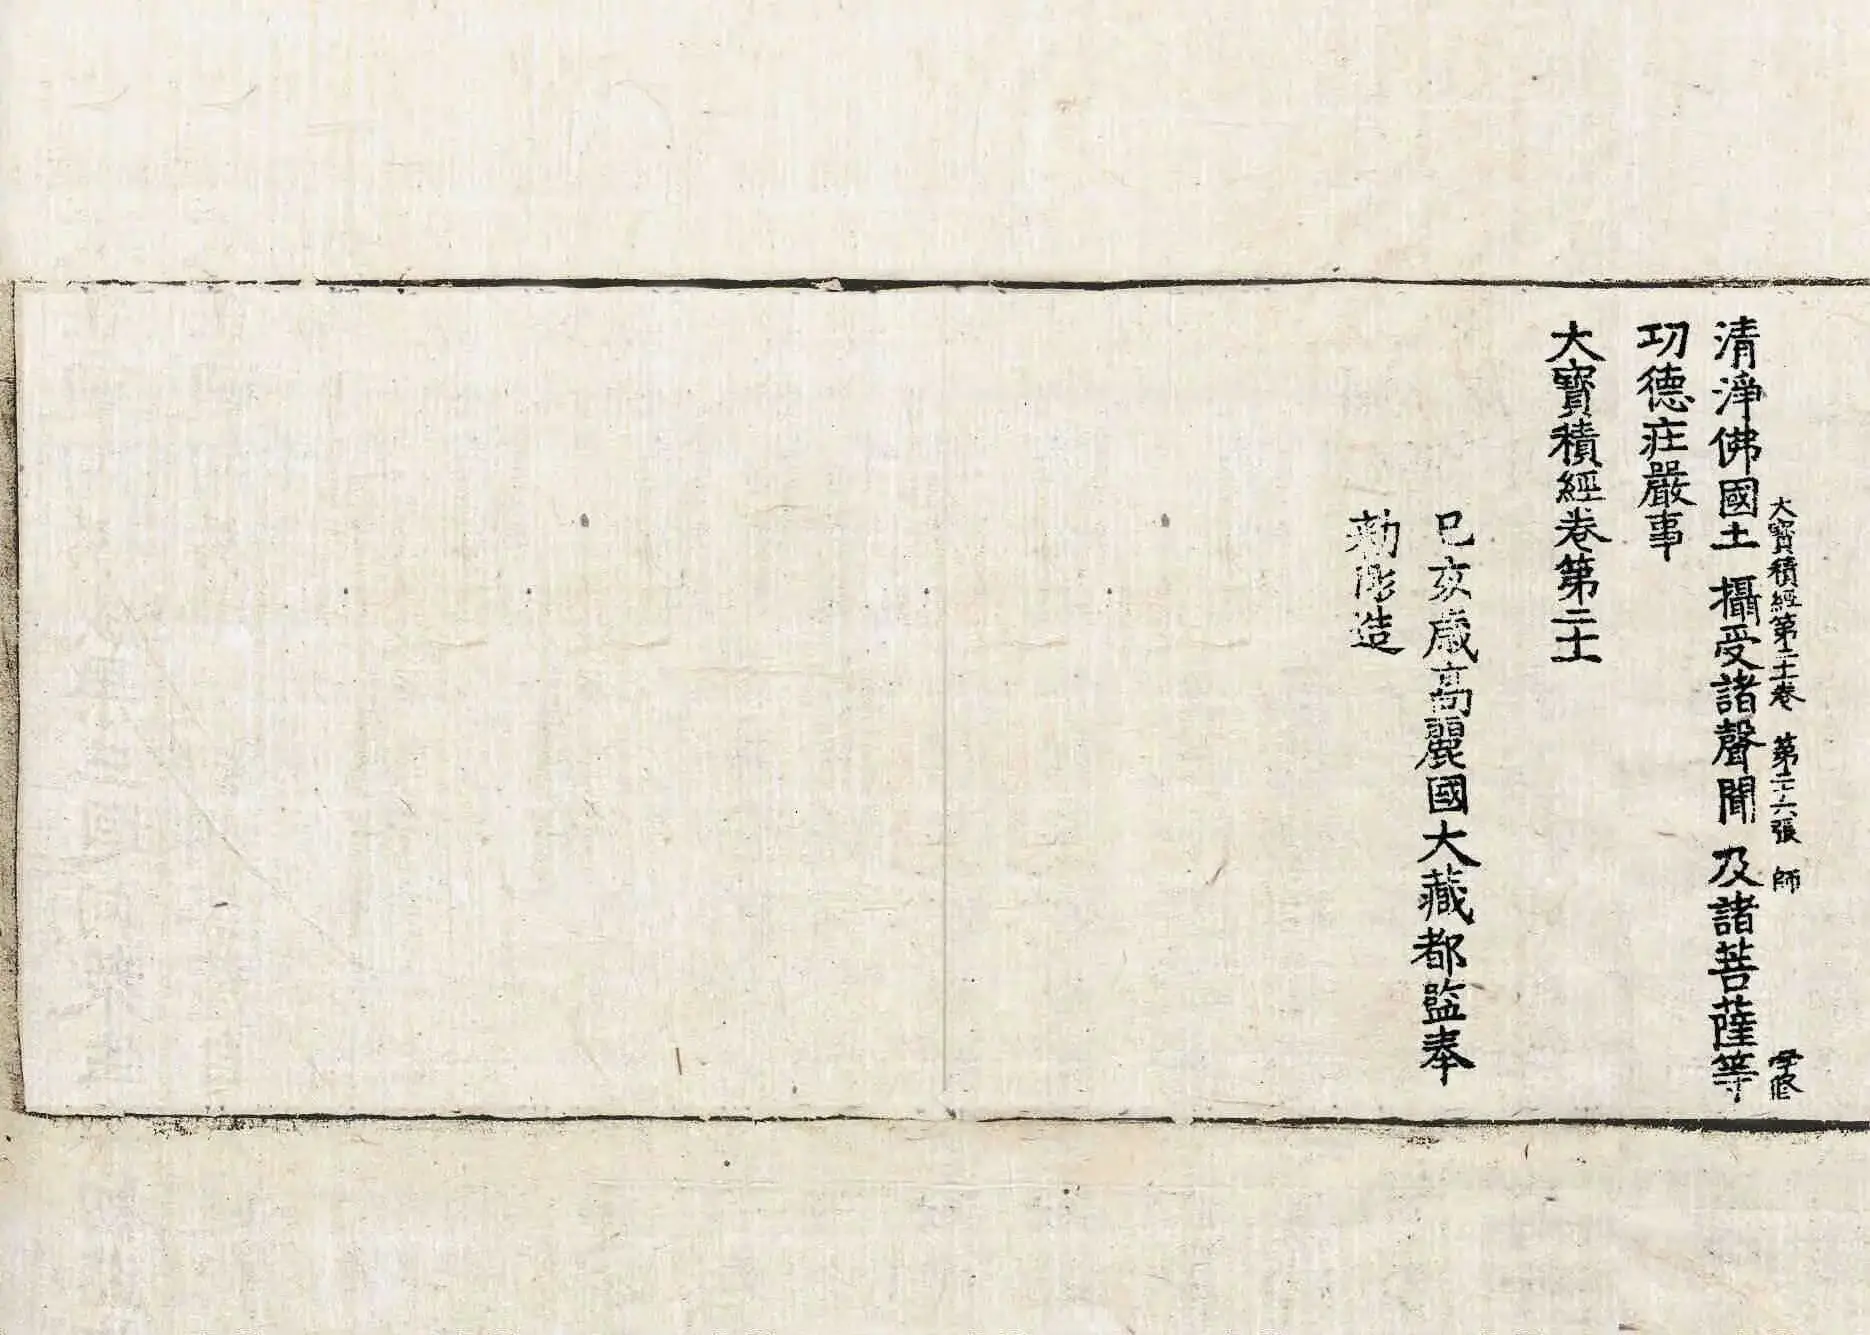 大寶積經第二十一卷 第二十六張 師 修
清淨佛國土 攝受諸聲聞 及諸菩薩等
功德莊嚴事
大寶積經卷第二十一
己亥歲高麗國大藏都監奉
勅彫造